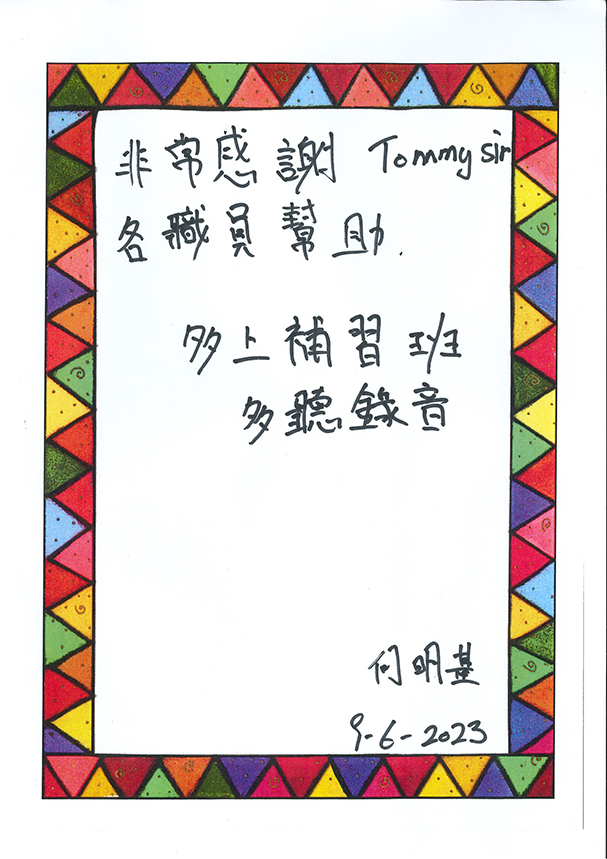 非常感謝 Tommy sir
各職員幫助.
多上補習班
多聽錄音
何明基
9-6-2023